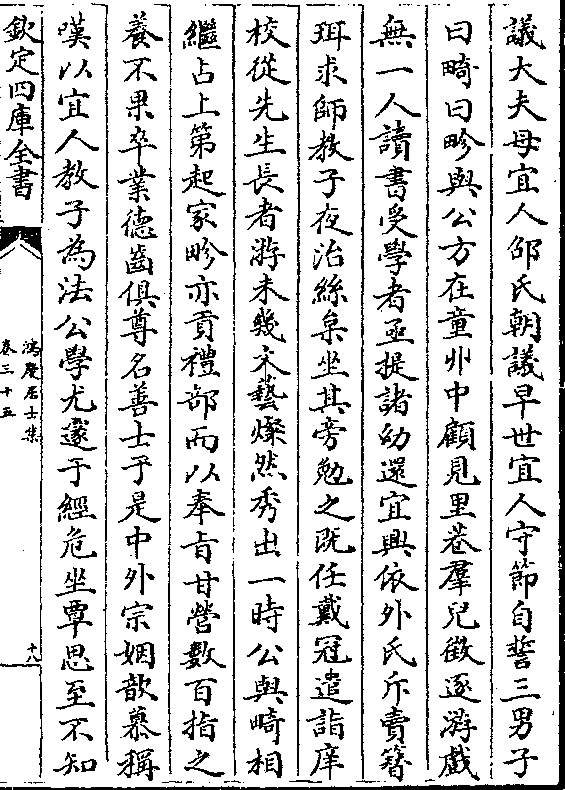 議大夫母宜人邵氏朝議早世宜人守節自誓三男子
曰畸曰畛與公方在童丱中顧見里巷羣兒徵逐游戲
無一人讀書受學者亟提諸幼還宜興依外氏斥賣簪
珥求師教子夜治絲枲坐其旁勉之既任戴冠遣詣庠
校從先生長者游未幾文藝燦然秀出一時公與畸相
繼占上第起家畛亦貢禮部而以奉旨甘營數百指之
養不果卒業德齒俱尊名善士于是中外宗姻歆慕稱
嘆以宜人教子為法公學尤邃于經危坐覃思至不知
欽定四庫全書
鴻慶居士集
卷三十五
十八